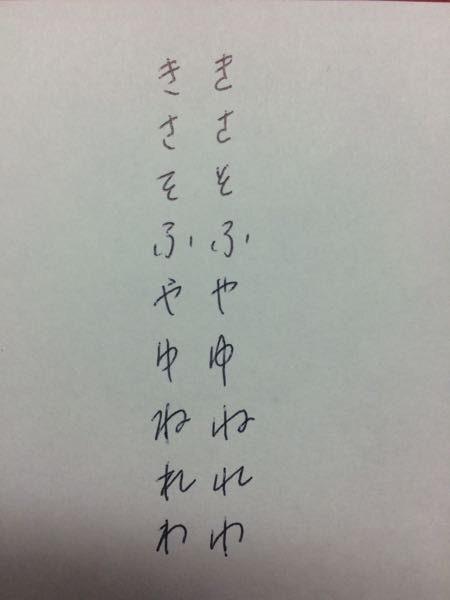 きさそふやゆねれわ
きさそふやゆねれわ